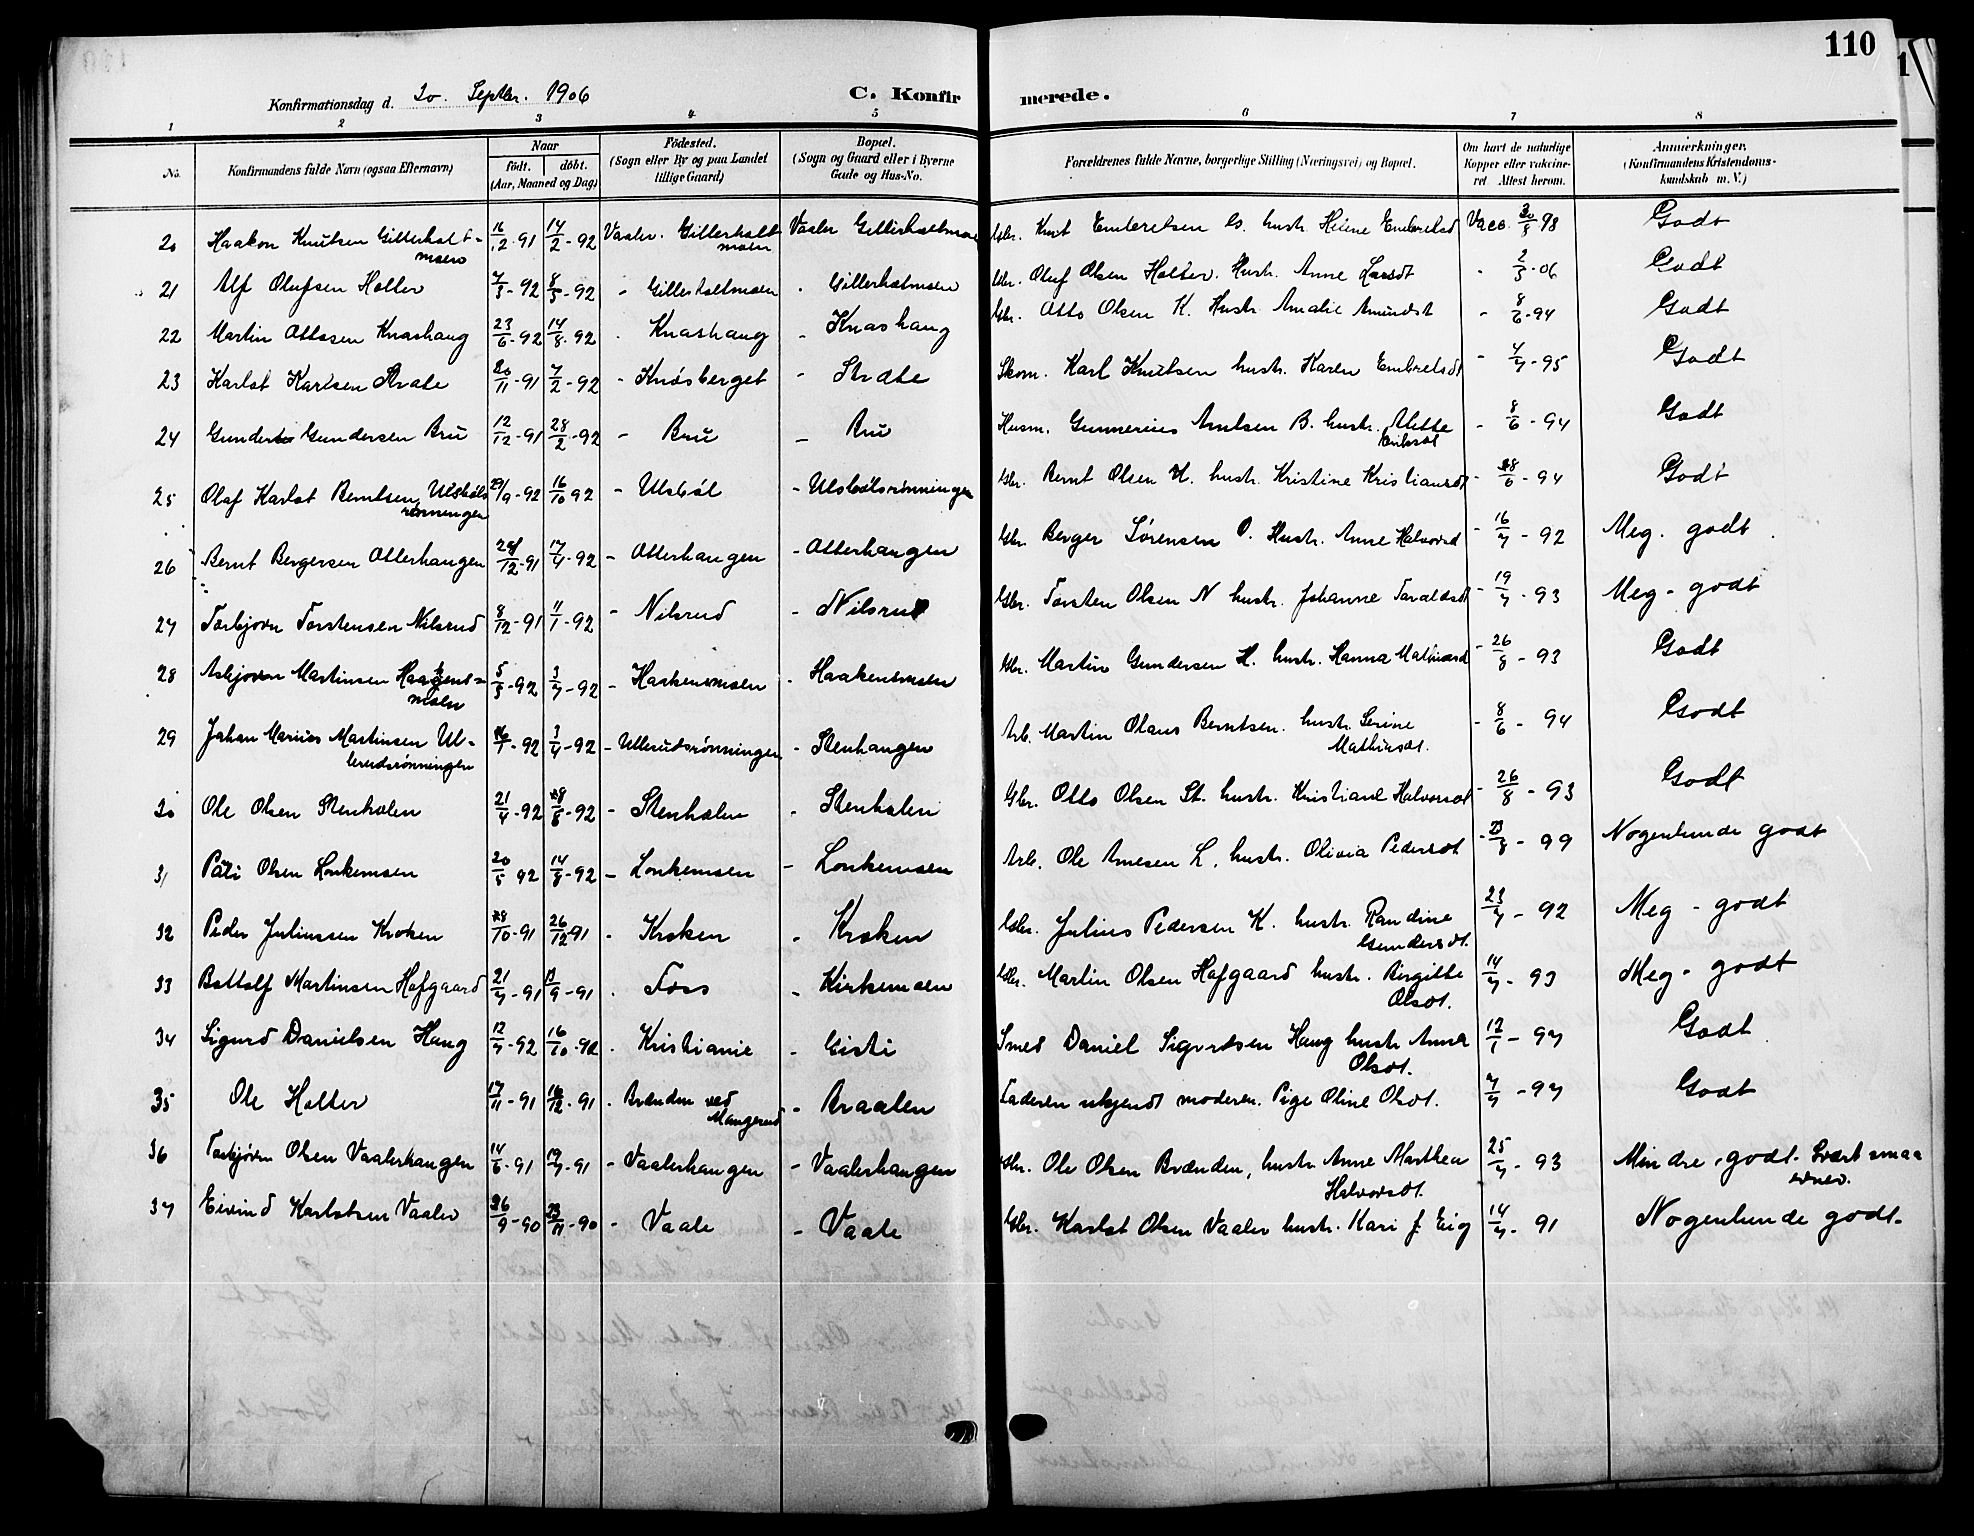 110
Konfirmationsdag d. 20. Septbr. 1906
C. Konfirmerede.
1 2 3 4 5 6 7 8
No. Konfirmandens fulde Navn (ogsaa Efternavn) Naar født. døbt. (Aar, Maaned og Dag) Fødested. (Sogn eller By og paa Landet tillige Gaard) Bopæl. (Sogn og Gaard eller i Byerne Gade og Hus-No. Forældrenes fulde Navne, borgerlige Stilling (Næringsvei) og Bopæl. Om havt de naturlige Kopper eller vaccineret. Attest herom. Anmerkninger. (Konfirmandens Kristendomskundskab m. V.)
20 Haakon Knutsen Gillerholtmoen 16/12-91 14/2-92 Vaaler. Gillerholtmoen Vaaler Gillerholtmoen Gbr. Knut Embretsen G. hustr. Helene Embretsd Vacc. 30/8 98 Godt
21 Alf Olufsen Holter 7/3-92 8/5-92 - Gillerholtmoen - Gillerholtmoen Gbr. Oluf Olsen Holter. Hustr. Anne Larsdt - 2/5-06 Godt
22 Martin Ottosen Knashaug 23/6-92 14/8-92 - Knashaug - Knashaug Gbr. Otto Olsen K. Hustr. Amalie Amundst - 8/6-94 Godt
23 Karlot Karlsen Strate 20/11-91 7/2-92 - Knøsberget - Strate Skom. Karl Knutsen hustr. Karen Embretsdt - 4/7-95 Godt
24 Gunder Gundersen Bru 12/12-91 28/2-92 - Bru - Bru Husm. Gunnerius Arntsen B. hustr. Alette Eriksdt - 8/6-94 Godt
25 Olaf Karlot Berntsen Ulsbølsrønningen 29/9-92 16/10 92 - Ulsbøl - Ulsbølsrønningen Gbr. Bernt Olsen U. hustr. Kristine Kristiansdt - 8/6-94 Godt
26 Bernt Bergersen Otterhaugen 12-91 17/4-92 - Otterhaugen - Otterhaugen Gbr. Berger Sørensen O. Hustr. Anne Halvorsd - 16/7-92 Meg. godt
27 Torbjørn Torstensen Nilsrud 8/12-91 11/1-92 - Nilsrud - Nilsrud Gbr. Torsten Olsen N hustr. Johanne Taraldsdt - 19/7-93 Meg - godt
28 Asbjørn Martinsen Haakensmoen 5/3-92 3/7-92 - Haakensmoen - Haakensmoen Gbr. Martin Gundersen H. hustr. Hanna Mathiasd - 26/8-93 Godt
29 Johan Marius Martinsen Ullerudsrønningen 16/1-92 3/4-92 - Ullerudsrønningen - Stenhaugen Arb. Martin Olaus Berntsen. hustr. Serine Mathiasdt. - 8/6-94 Godt
30 Ole Olsen Stenhølen 21/4-92 8/8-92 - Stenhølen - Stenhølen Gbr. Otto Olsen St. hustr. Kristiane Halvorsdt - 26/8-93 Godt
31 Olsen Lonkemoen 20/5 92 14/8-92 - Lonkemoen - Lonkemoen Arb. Ole Arnesen L. hustr. Olivia Pedersdt - 23/8-99 Nogenlunde godt
32 Peder Juliussen Kroken 8/10-91 26/12-91 - Kroken - Kroken Gbr. Julius Pedersen K. hustr. Randine Gundersdt. 23/7-92 Meg - godt
33 Bottolf Martinsen Hofgaard 21/7-91 13/9-91 - Foss - Kirkemoen Gbr. Martin Olsen Hofgaard hustr. Birgitte Olsdt. 14/7-93 Meg - godt
34 Sigurd Danielsen Haug 12/7-92 16/10-92 - Kristiania - Gisti Smed Daniel Sigvrdsen Haug hustr Anna Olsdt. 12/1-97 Godt
35 Ole Holter 17/11-91 12-91 - Brænden ved Mangerud - Braaten Faderen ukjendt moderen. Pige Oline Olsdt. 7/7-97 Godt
36 Torbjørn Olsen Vaalerhaugen 14/6-91 19/7-91 - Vaalerhaugen - Vaalerhaugen Gbr. Ole Olsen Brænden, hustr Anne Marthea Halvorsdt. 25/7-93 Mindre godt. Svært smaa evner.
37 Eivind Karlotsen Vaaler 26/9-90 23/11-90 - Vaale - Vaale Gbr. Karlot Olsen Vaaler hustr. Kari f. Eig 14/7-91 Nogenlunde godt.